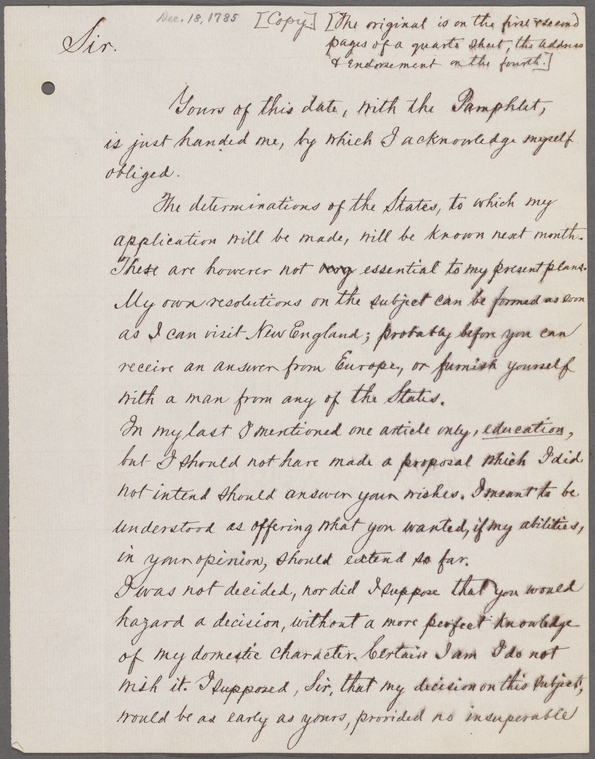 Dec. 18, 1785 [Copy.] [The original is on the first & second
pages of a quarto sheet, the address
& endorsement on the fourth.]
Sir.
Yours of this date, with the Pamphlet,
is just handed me, by which I acknowledge myself
obliged.
The determinations of the States, to which my
application will be made, will be known next month.
These are however not very essential to my present plans.
My own resolutions on the subject can be formed as soon
as I can visit New England; probably before you can
receive an answer from Europe, or furnish yourself
with a man from any of the States.
In my last I mentioned one article only, education,
but I should not have made a proposal which I did
not intend should answer your wishes. I meant to be
understood as offering what you wanted, if my abilities,
in your opinion, should extend so far.
I was not decided, nor did I suppose that you would
hazard a decision, without a more perfect knowledge
of my domestic character. Certain I am I do not
wish it. I supposed, Sir, that my decision on this subject,
would be as early as yours, provided no insuperable